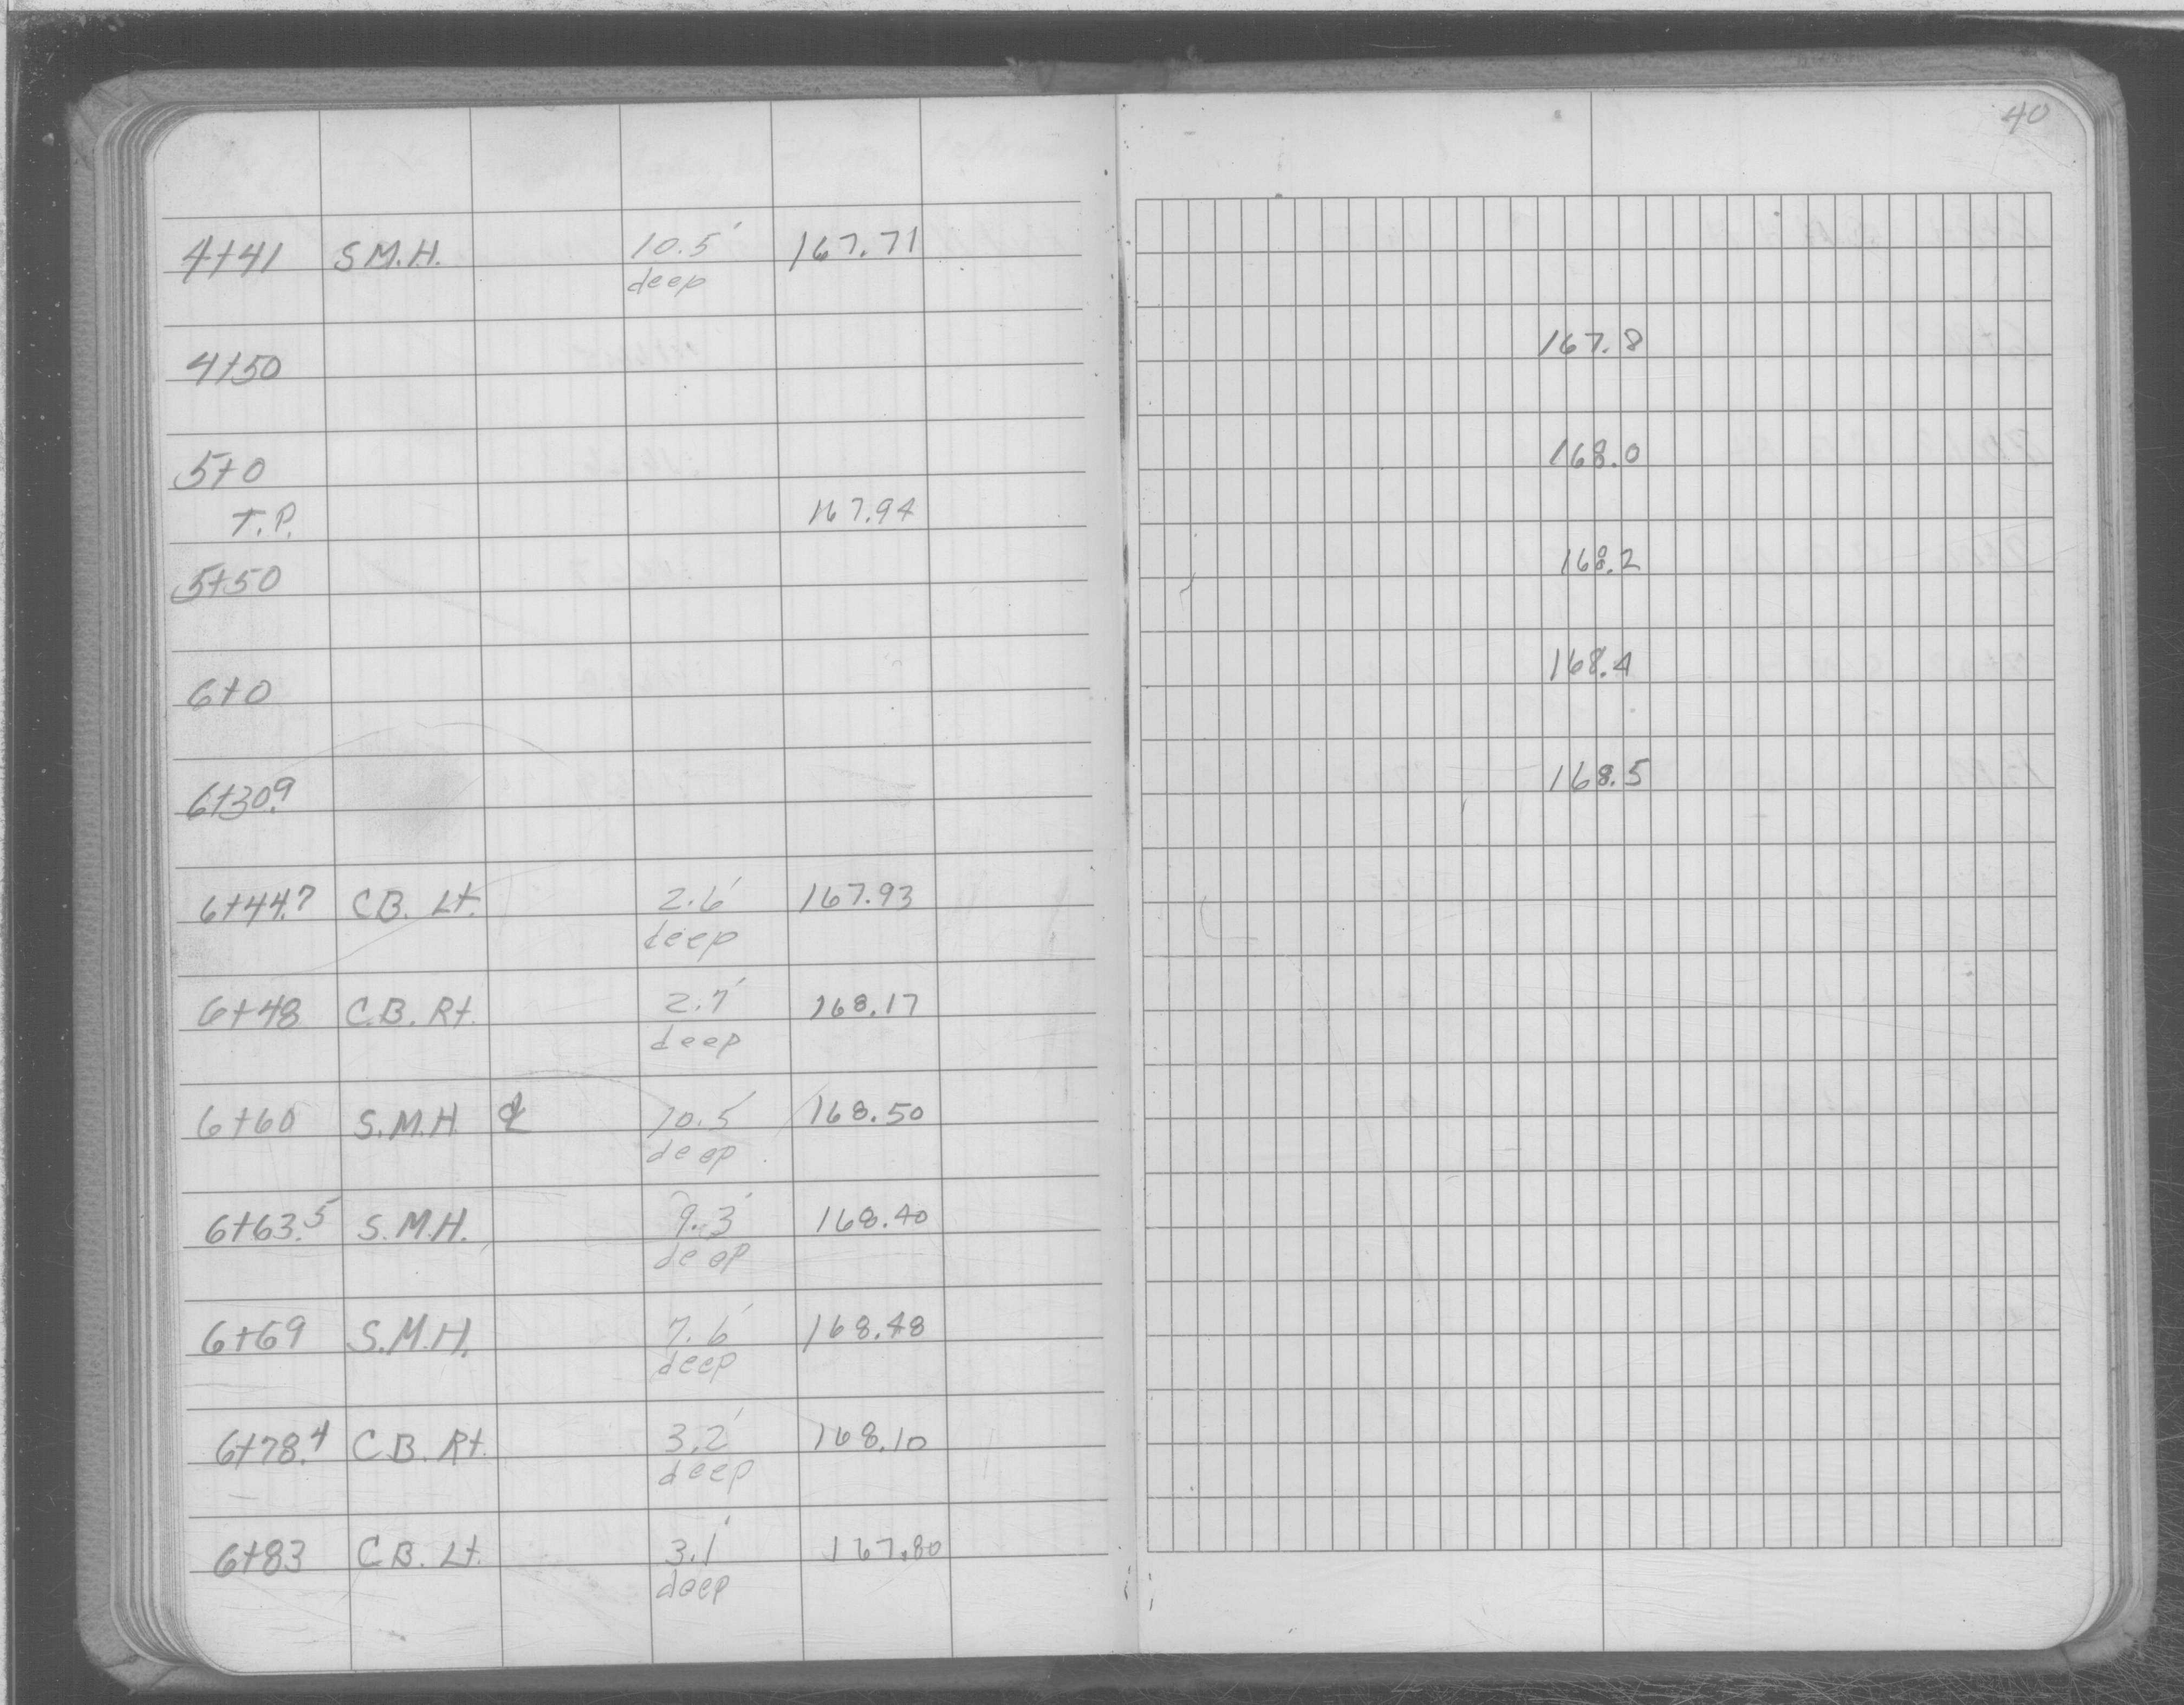 40
4+41 S.M.H. 10.5' 167.71
deep
4+50 167.8
5+0 168.0
T.P. 167.94
5+50 168.2
6+0 168.4
6+30.9 168.5
6+44.7 C.B. Lt. 2.6' 167.93
deep
6+48 C.B. Rt. 2.7' 168.17
deep
6+60 S.M.H ℄ 10.5' 168.50
deep
6+63.5 S.M.H. 9.3' 168.40
deep
6+69 S.M.H. 7.6' 168.48
deep
6+78.4 C.B. Rt. 3.2' 168.10
deep
6+83 C.B. Lt. 3.1' 167.80
deep